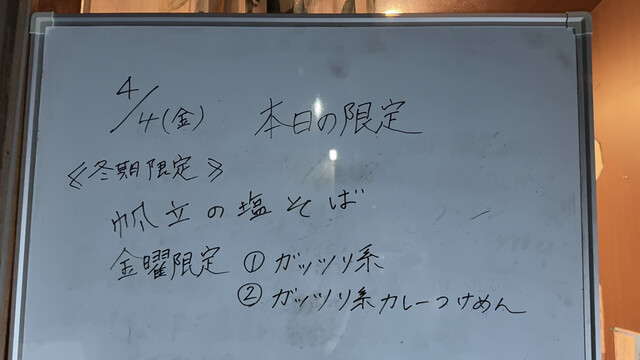 4/4(金) 本日の限定
《冬期限定》
帆立の塩そば
金曜限定 ① ガッツリ系
② ガッツリ系カレーつけめん